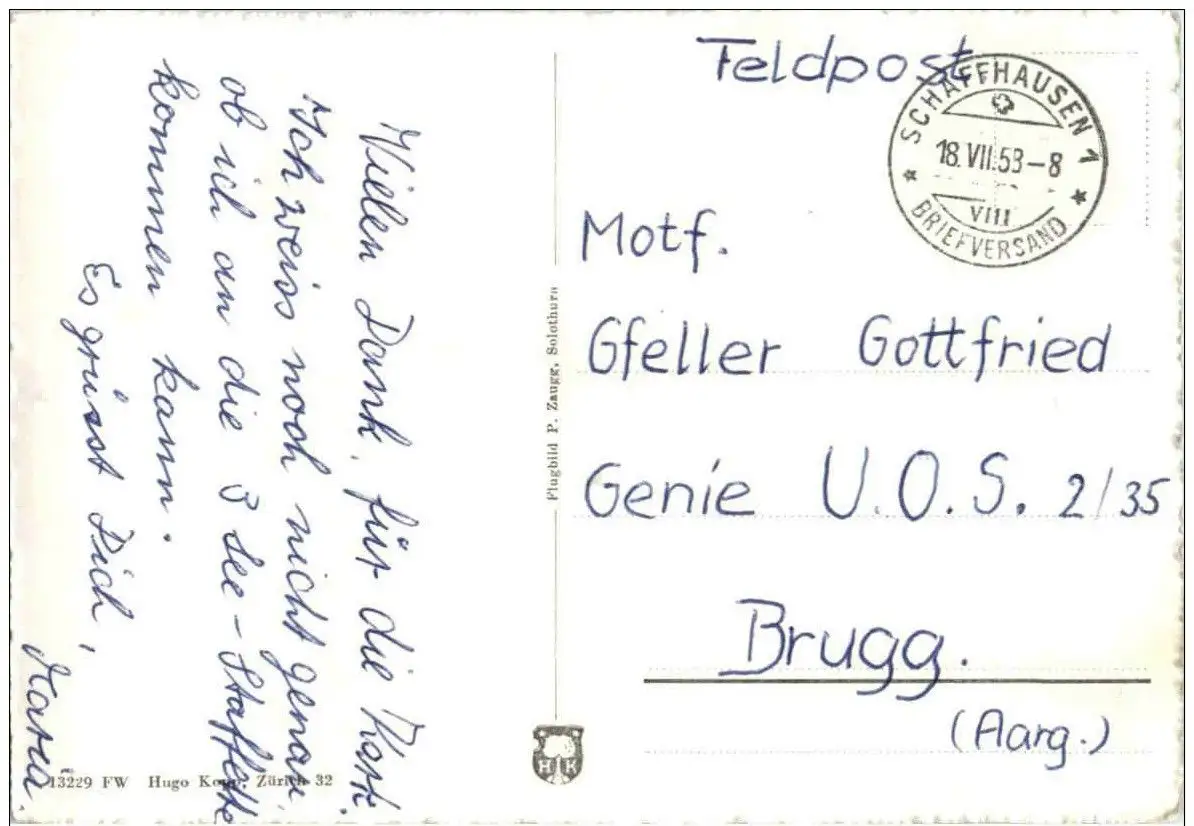 Vielen Dank, für die Karte.
Ich weiss noch nicht genau,
ob ich an die 3 See-Staffette
kommen kann.
Es grüsst Dich,
Maria.
Feldpost
SCHAFFHAUSEN 1
18.VII.53-8
VIII
BRIEFVERSAND
Motf.
Gfeller Gottfried
Genie U.O.S. 2/35
Brugg.
(Aarg.)
Flugbild P. Zaugg, Solothurn
H K
13229 FW Hugo Kopp, Zürich 32